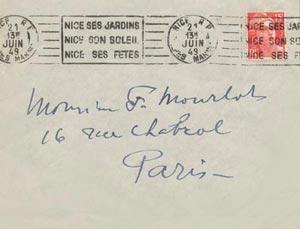 NICE R.P.
21H
13
JUIN
49
ALPES MARMES
NICE SES JARDINS
NICE SON SOLEIL
NICE SES FETES
NICE R.P.
21H
13
JUIN
49
NICE SES JARDINS
NICE SON SOLEIL
NICE SES FETES
Monsieur F. Mourlot
16 rue Chabrol
Paris